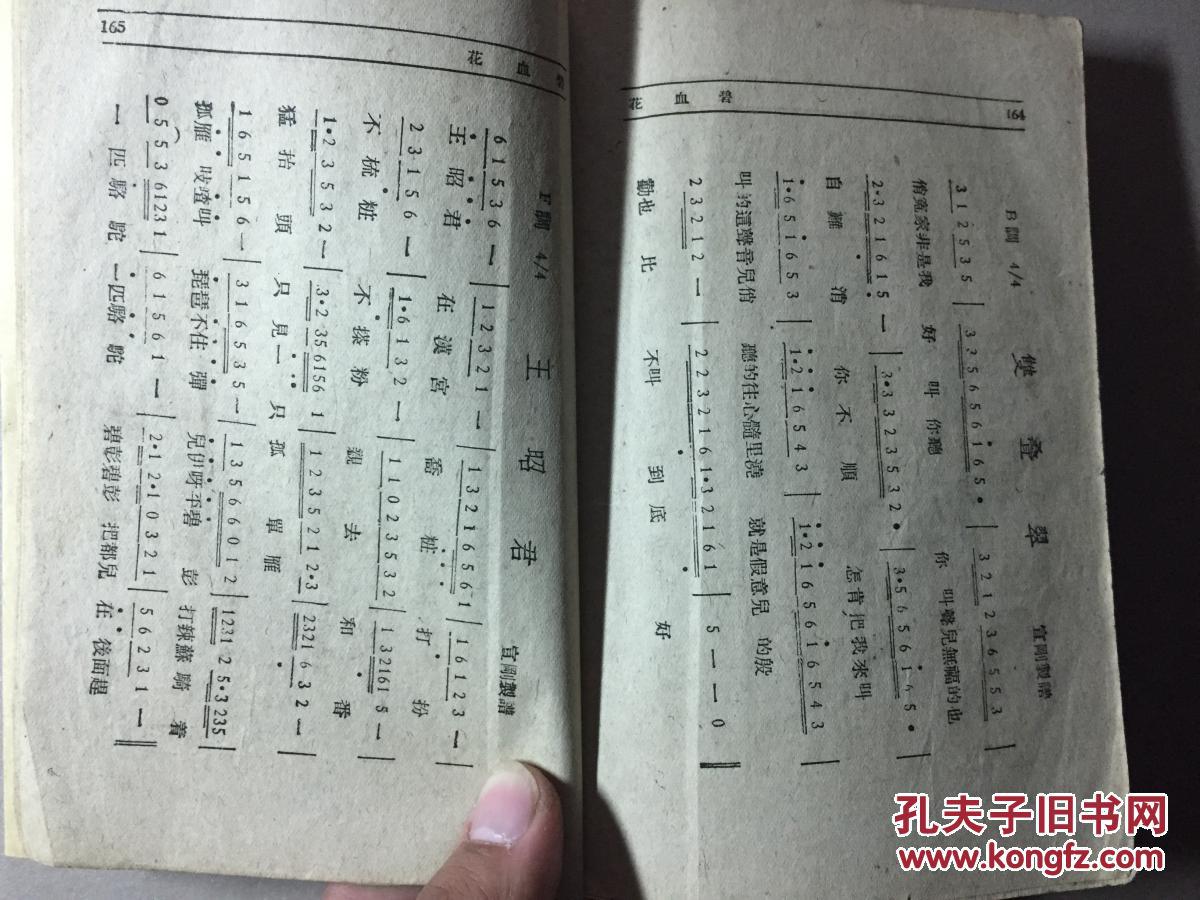 164
碧血花
雙疊翠
B調 4/4
宣剛製譜
3 1 2 5 3 5 | 3 3 5 6 5 6 1 6 5 | 3 2 1 2 3 6 5 5 3 |
俏冤家非是我 好叫你聽 你叫聲兒無福的也
2·3 2 1 6 1 5 一 | 3·3 3 2 3 5 3 2 | 3·5 6 5 6 1 6 5 |
自難消 你不順 怎肯把我來叫
1·6 5 1 6 5 3 | 1·2 1 6 5 4 3 | 1·2 1 6 5 6 1 6 5 4 3 |
叫的這聲音兒俏 聽的往心隨里澆 就是假意兒的殷
2 3 2 1 2 一 | 2 2 3 2 1 6 1·3 2 1 6 1 | 5 一 一 0
勸也比不叫到底好
165
碧血花
王昭君
F調 4/4
宣剛製譜
6 1 5 3 6 一 | 1 2 3 2 1 一 | 1 3 2 1 6 5 6 1 | 1 6 1 2 3 一 |
王昭君 在漢宮 喬粧打扮
2 3 1 5 6 一 | 1·6 1 3 2 一 | 1 1 0 2 3 5 3 2 | 1 3 2 1 6 1 5 一 |
不梳粧 不搽粉 親去和番
1·2 3 5 3 2 一 | 3·2 3 5 6 1 5 6 1 | 1 2 3 5 2 1 2·3 | 2 3 2 1 6 3 2 一 |
猛抬頭只見一只孤單雁
1 6 5 1 5 6 一 | 3 1 6 5 3 5 一 | 1 3 5 6 6 0 1 2 | 1 2 3 1 2 5·3 2 3 5 |
孤雁吱喳叫 琵琶不住彈 兒伊呀平碧彭打辣蘇騎着
0 5 5 3 6 1 2 3 1 | 6 1 5 6 1 一 | 2·1 2·1 0 3 2 1 | 5 6 2 3 1 一
一匹駱駝一匹駱駝 碧彭碧彭把都兒在後面趕
孔夫子旧书网
www.kongfz.com